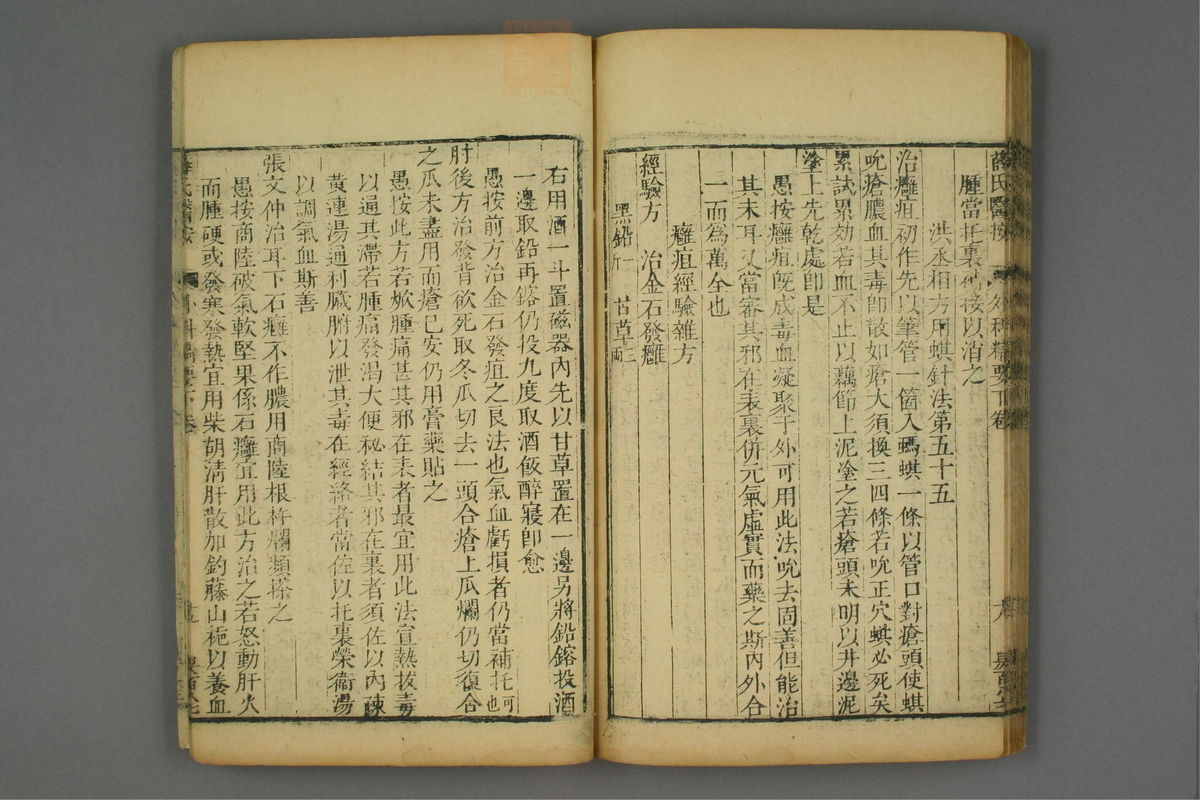 薛氏醫按 外科精要下卷 六
腫當托裏藥接以消之
洪丞相方用蜞針法第五十五
治癰疽初作先以筆管一箇入螞蜞一條以管口對瘡頭使蜞
吮瘡膿血其毒卽散如瘡大須換三四條若吮正穴蜞必死矣
累試累効若血不止以藕節上泥塗之若瘡頭未明以井邊泥
塗上先乾處卽是
愚按癰疽旣成毒血凝聚于外可用此法吮去固善但能治
其未耳又當審其邪在表裏併元氣虛實而藥之斯內外合
一而為萬全也
癰疽經驗雜方
經驗方 治金石發癰
黑鉛一斤 甘草三兩
右用酒一斗置磁器內先以甘草置在一邊另將鉛鎔投酒
一邊取鉛再鎔仍投九度取酒飯醉寢卽愈
愚按前方治金石發疽之良法也氣血虧損者仍當補托可也
肘後方治發背欲死取冬瓜切去一頭合瘡上瓜爛仍切復合
之瓜未盡用而瘡已安仍用膏藥貼之
愚按此方若焮腫痛甚其邪在表者最宜用此法宣熱拔毒
以通其滯若腫痛發渴大便秘結其邪在裏者須佐以內疎
黃連湯通利臟腑以泄其毒在經絡者當佐以托裏榮衞湯
以調氣血斯善
張文仲治耳下石癰不作膿用商陸根杵爛頻搽之
愚按商陸破氣軟堅果係石癰宜用此方治之若怒動肝火
而腫硬或發寒發熱宜用柴胡淸肝散加釣藤山梔以養血